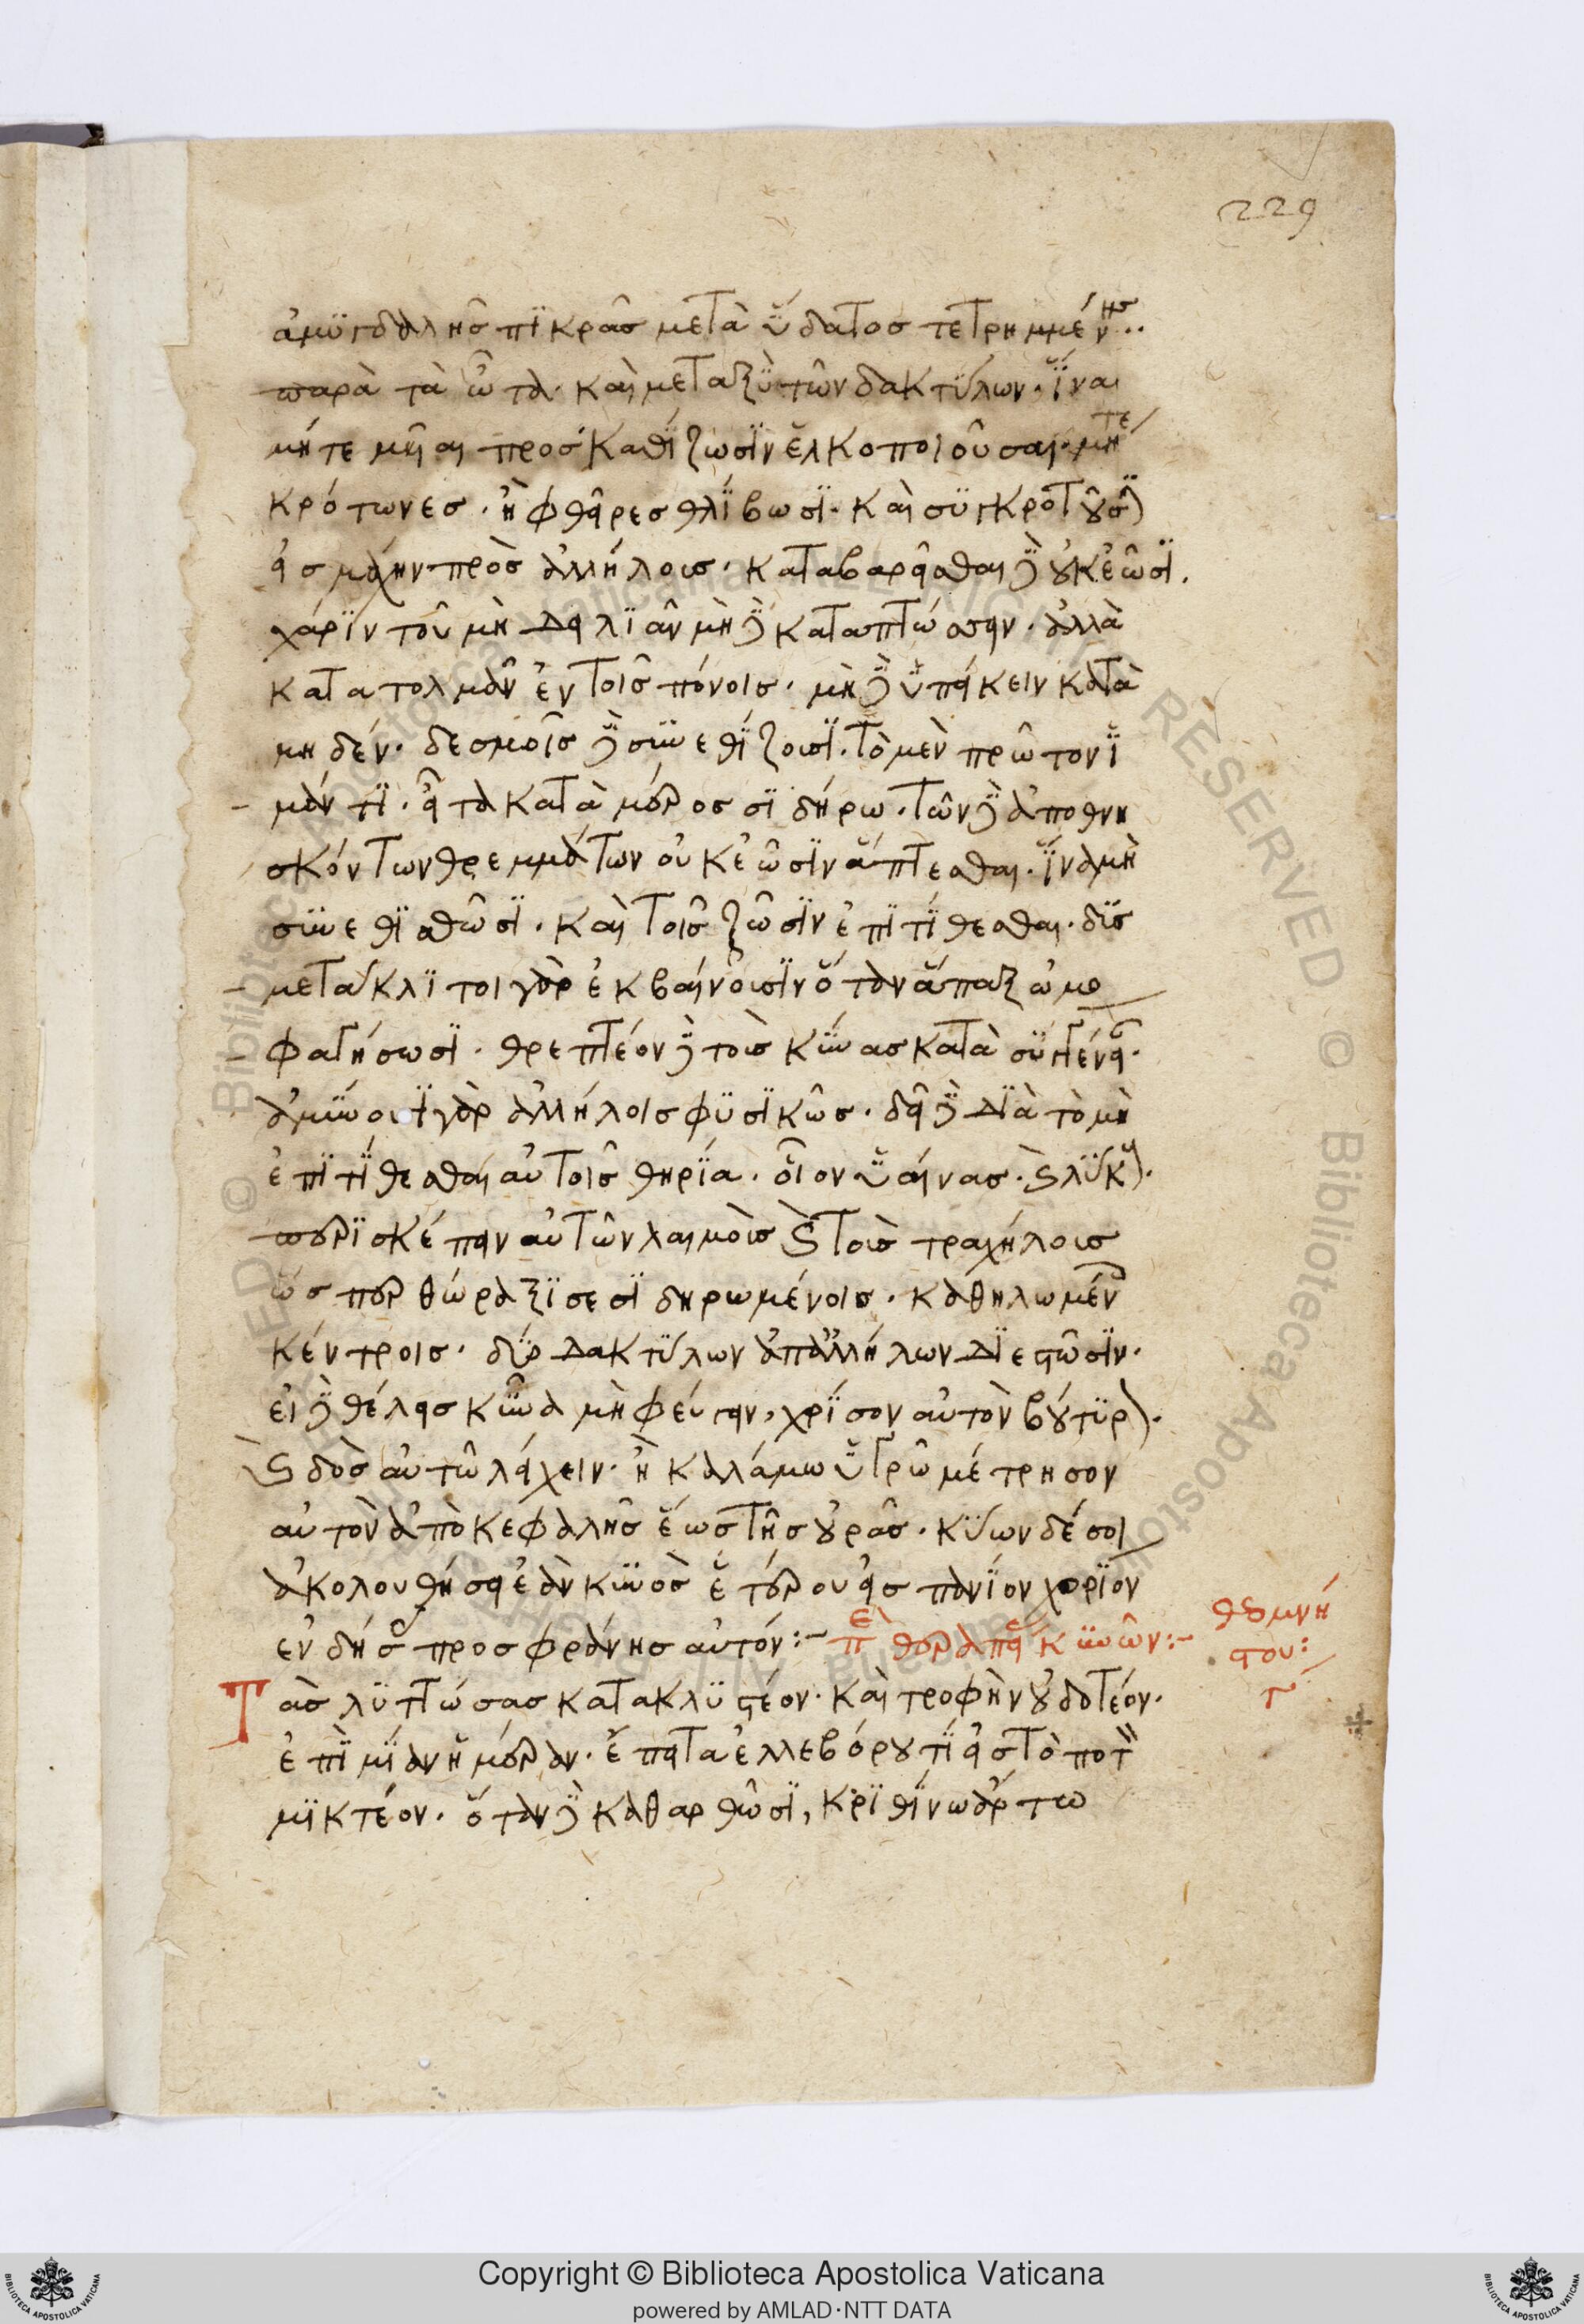 229
ἀμϋγδάλησ πϊκρᾶσ μετὰ ὕδατοσ τετρημμένησ..
παρὰ τὰ ὦτα· καὶ μεταξὺ τῶν δακτύλων· ἵνα
μήτε μῦιαι προσκαθΐζωσϊν ἑλκοποιοῦσαι· μήτε
κρότωνεσ· ἢ φθεῖρεσ θλΐβωσϊ· καὶ συγκροτοῦσ
εἰσ μάχην πρὸσ ἀλλήλουσ· καταβαρεῖσθαι δὲ οὐκ ἐῶσϊ.
χάρϊν τοῦ μὴ δειλϊᾶν μὴ δὲ καταπτώσσειν· ἀλλὰ
κατατολμᾶν ἐν τοῖσ πόνοισ· μὴ δὲ ὑπείκειν κατὰ
μηδέν· δεσμοῖσ δὲ συνεθΐζουσϊ· τὸ μὲν πρῶτον ἱ
μάντϊ· εἶτα κατὰ μέροσ σϊδήρω· τῶν δὲ ἀποθνη
σκόντων θρεμμάτων οὐκ ἐῶσϊν ἅπτεσθαι· ἵνα μὴ
συνεθϊσθῶσϊ· καὶ τοῖσ ζῶσϊν ἐπϊτΐθεσθαι· δυσ
μετάκλϊτοι γὰρ ἐκβαίνουσϊν ὅταν ἅπαξ ὠμο
φαγήσωσϊ· θρεπτέον δὲ τοὺσ κύνασ κατὰ συγγένει·
ἀμύνουσϊ γὰρ ἀλλήλοισ φϋσϊκῶσ· δεῖ δὲ δϊὰ τὸ μὴ
ἐπϊτΐθεσθαι αὐτοῖσ θηρΐα· οἷον ὑαίνασ· καὶ λύκ·
περϊσκέπειν αὐτῶν λαιμοὺσ καὶ τοὺσ τραχήλουσ
ὥσπερ θώραξϊ σεσϊδηρωμένοισ· καθηλωμέν
κέντροισ· δύο δακτύλων ἀπαλλήλων δϊεστῶσϊν·
εἰ δὲ θέλεισ κύνα μὴ φεύγειν, χρΐσον αὐτὸν βουτύρ·
καὶ δὸσ αὐτῶ λείχειν· ἢ καλάμω ὑγρῶ μέτρησον
αὐτὸν ἀπὸ κεφαλῆσ ἕωσ τῆσ οὐρᾶσ· κύων δέ σοι
ἀκολουθήσει ἐὰν κυνὸσ ἑτέρου εἰσ πανΐον χορΐον
ενδήσ προσφράνησ αὐτόν:- περὶ θεραπεί κυνῶν:- θεομνή
στου:
Τ ὰσ λυττώσασ κατακλυστέον· καὶ τροφὴν οὐ δοτέον·
ἐπὶ μΐαν ἡμέραν· ἔπειτα ἐλλεβόρου τϊ εἰσ τὸ ποτ
μϊκτέον· ὅταν δὲ καθαρθῶσϊ, κρϊθΐνω ἄρτω
Copyright © Biblioteca Apostolica Vaticana
powered by AMLAD·NTT DATA